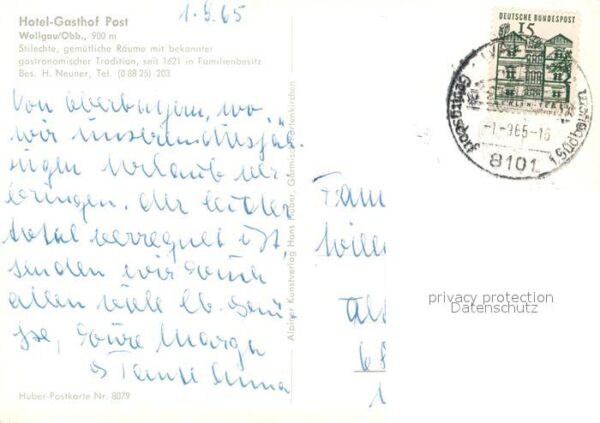 1.9.65
Hotel-Gasthof Post
Wallgau/Obb., 900 m
Stilechte, gemütliche Räume mit bekannter
gastronomischer Tradition, seit 1621 in Familienbesitz.
Bes. H. Neuner, Tel. (0 88 25) 203
Von Oberbayern, wo
wir unseren diesjäh-
rigen Urlaub ver-
bringen. der leider
total verregnet ist,
senden wir Euch
allen viele lb. Grü-
sse, Eure Marga
& Tante Anna
Huber-Postkarte Nr. 8079
Alpiner Kunstverlag Hans Huber, Garmisch-Partenkirchen
DEUTSCHE BUNDESPOST
15
BERLIN-TEGEL
-1.-9.65-16
8101
Fam
Will
privacy protection
Datenschutz